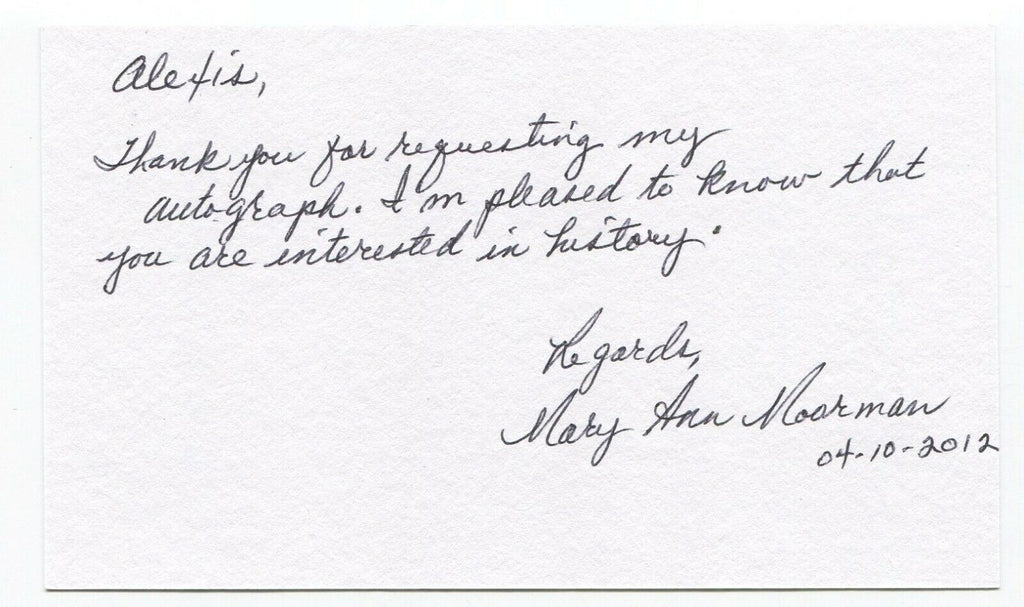 Alexis,
Thank you for requesting my
autograph. I'm pleased to know that
you are interested in history.
Regards,
Mary Ann Moorman
04-10-2012